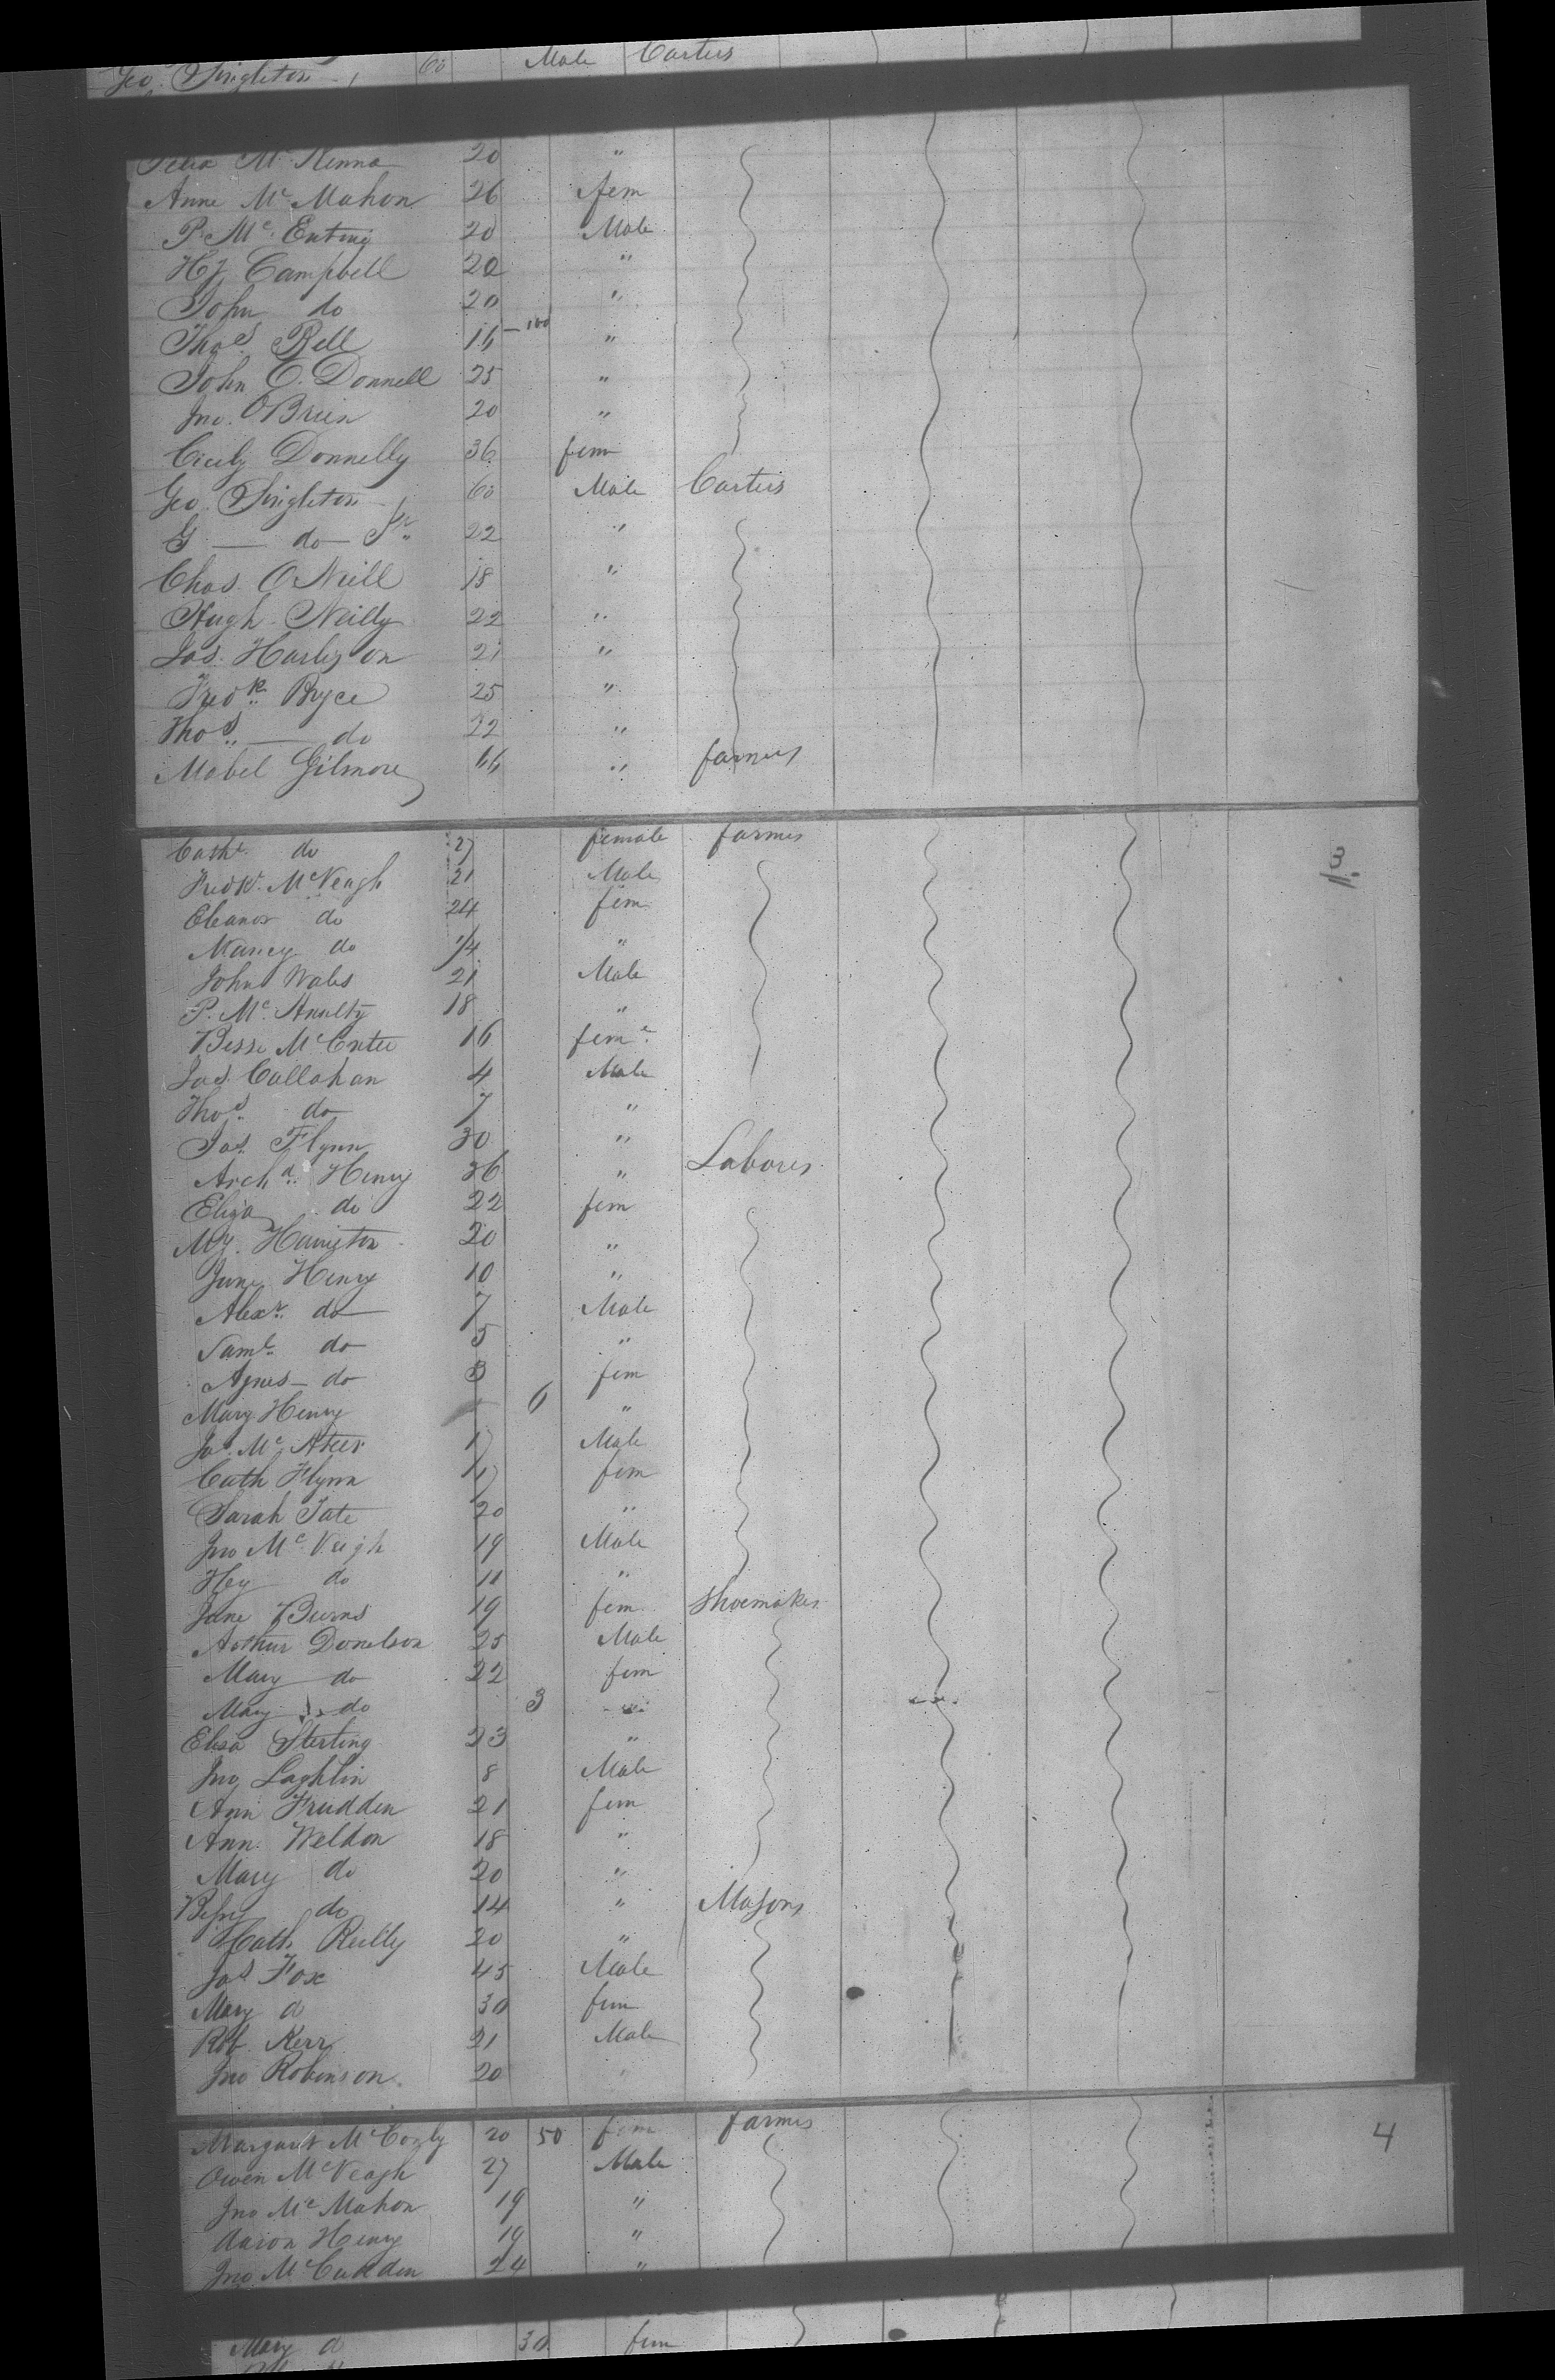 Geo. Singleton 60 Male Carters
Felix McKenna 20 "
Anne McMahon 26 fem
P. McEnting 20 Male
Hy Campbell 20 "
John do 20 "
Thos. Bell 16 "
John O. Donnell 25 "
Jno. O'Brien 20 "
Cicily Donnelly 36 fem
Geo. Singleton 60 Male Carters
G — do — 22 "
Chas. O'Neill 18 "
Hugh Neilly 22 "
Jas. 21 "
Fredk. Bryce 25 "
Thos. — do 22 "
Mabel Gilmore " farmers
Cathe. do 27 female farmers
3
Fredk. McVeagh 21 Male
Eleanor do 24 fem
do "
John Wales 21 Male
P. McAnulty 18 "
Besse McEntee 16 feme.
Jas. Callahan 4 Male
Thos. do 7 "
Jas. Flynn 30 "
Archd. Henry 36 " Labores
Eliza do 22 fem
My. 20 "
Jane Henry 10 "
Alexr. do 7 Male
Saml. do 5 "
Agnes — do 3 fem
Mary Henry 6 "
Jas. McAteer 17 Male
Cath Flynn 17 fem
Sarah Tate 20 "
Jno McVeigh 19 Male
Hy do 11 "
Jane Burns 19 fem Shoemakes
Arthur Donelson 25 Male
Mary do 22 fem
Mary do 3 "
Elisa Sterling 23 "
Jno Laghlin 8 Male
Ann Frudden 21 fem
Ann Weldon 18 "
Mary do 20 "
do 14 " Masons
Cath Reilly 20 "
Jas Fox 45 Male
Mary do 30 fem
Rob. Kerr 21 Male
Jno Robinson 20 "
Margaret 20 50 fem farmes
4
Owen McVeagh 27 Male
Jno McMahon 19 "
Aaron Henry 19 "
Jno 24 "
Mary d 30 fem